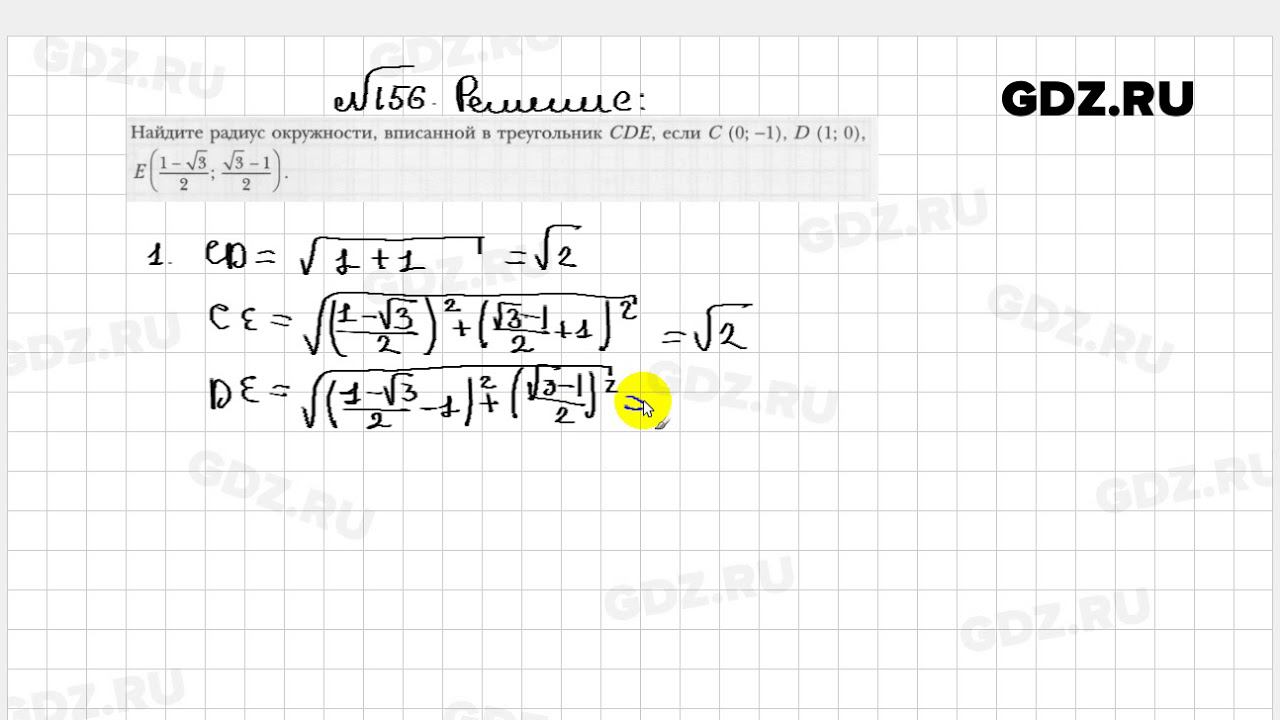 GDZ.RU
№156. Решение:
Найдите радиус окружности, вписанной в треугольник CDE, если C (0; –1), D (1; 0),
E((1 – √3)/2; (√3 – 1)/2).
1. CD = √(1 + 1) = √2
CE = √(((1 – √3)/2)² + ((√3 – 1)/2 + 1)²) = √2
DE = √(((1 – √3)/2 – 1)² + ((√3 – 1)/2)²) =
GDZ.RU
GDZ.RU
GDZ.RU
GDZ.RU
GDZ.RU
GDZ.RU
GDZ.RU
GDZ.RU
GDZ.RU
GDZ.RU
GDZ.RU
GDZ.RU
GDZ.RU